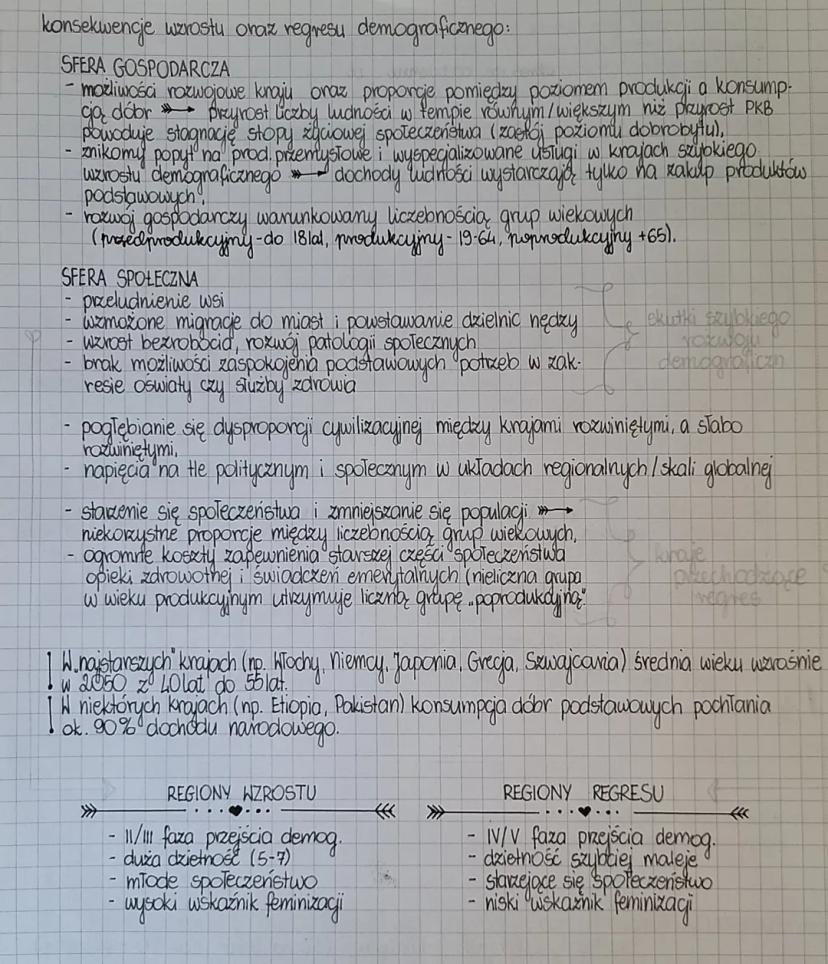 konsekwencje wzrostu oraz regresu demograficznego:
SFERA GOSPODARCZA
- możliwości rozwojowe kraju oraz proporcje pomiędzy poziomem produkcji a konsump-
cją dóbr → przyrost liczby ludności w tempie równym/większym niż przyrost PKB
powoduje stagnację stopy życiowej społeczeństwa (zastój poziomu dobrobytu),
- znikomy popyt na prod. przemysłowe i wyspecjalizowane usługi w krajach szybkiego
wzrostu demograficznego → dochody ludności wystarczają tylko na zakup produktów
podstawowych,
- rozwój gospodarczy warunkowany liczebnością grup wiekowych
(przedprodukcyjny - do 18 lat, produkcyjny - 19-64, poprodukcyjny +65).
SFERA SPOŁECZNA
- przeludnienie wsi
- wzmożone migracje do miast i powstawanie dzielnic nędzy
- wzrost bezrobocia, rozwój patologii społecznych
- brak możliwości zaspokojenia podstawowych potrzeb w zak-
resie oświaty czy służby zdrowia
skutki szybkiego
rozwoju
demograficzn
- pogłębianie się dysproporcji cywilizacyjnej między krajami rozwiniętymi, a słabo
rozwiniętymi,
- napięcia na tle politycznym i społecznym w układach regionalnych/skali globalnej
- starzenie się społeczeństwa i zmniejszanie się populacji →
niekorzystne proporcje między liczebnością grup wiekowych,
- ogromne koszty zapewnienia starszej części społeczeństwa
opieki zdrowotnej i świadczeń emerytalnych (nieliczna grupa
w wieku produkcyjnym utrzymuje liczną grupę „poprodukcyjną".
kraje
przechodzące
regres
! W „najstarszych" krajach (np. Włochy, Niemcy, Japonia, Grecja, Szwajcaria) średnia wieku wzrośnie
w 2050 z 40 lat do 55 lat.
! W niektórych krajach (np. Etiopia, Pakistan) konsumpcja dóbr podstawowych pochłania
ok. 90% dochodu narodowego.
REGIONY WZROSTU
- II/III faza przejścia demog.
- duża dzietność (5-7)
- młode społeczeństwo
- wysoki wskaźnik feminizacji
REGIONY REGRESU
- IV/V faza przejścia demog.
- dzietność szybciej maleje
- starzejące się społeczeństwo
- niski wskaźnik feminizacji